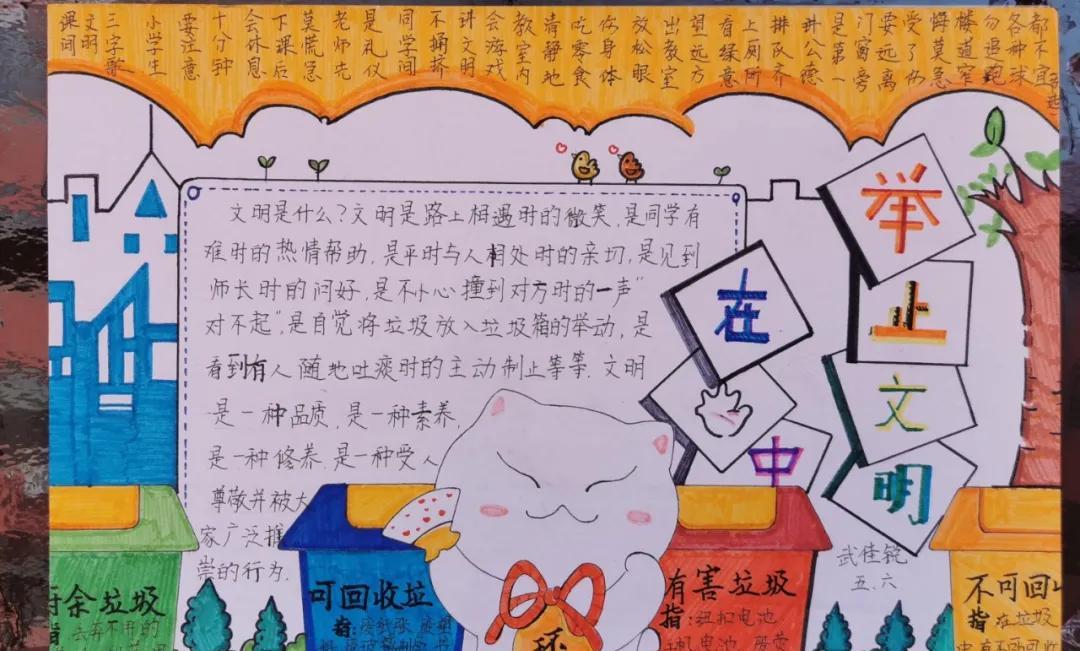 课词
文明
三字歌
小学生
要注意
十分钟
会休息
下课后
莫慌急
老师先
是礼仪
同学间
不拥挤
讲文明
会游戏
教室内
清静地
吃零食
伤身体
放松眼
出教室
望远方
看绿意
上厕所
排队齐
讲公德
是第一
门窗旁
要远离
受了伤
悔莫急
楼道窄
勿追跑
各种球
都不宜
举止文明
在
中
文明是什么?文明是路上相遇时的微笑,是同学有
难时的热情帮助,是平时与人相处时的亲切,是见到
师长时的问好,是不小心撞到对方时的一声"
对不起",是自觉将垃圾放入垃圾箱的举动,是
看到有人随地吐痰时的主动制止等等.文明
是一种品质,是一种素养,
是一种修养,是一种受人
尊敬并被大
家广泛推
崇的行为.
武佳锐
五.六
余垃圾
指:去弃不用的
可回收垃圾
指:废纸张
有害垃圾
指:纽扣电池
机电池
不可回
指:在垃圾
环